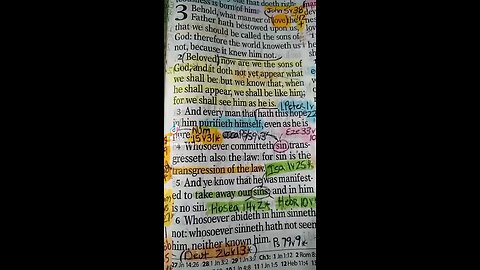 eousness is born of him.
3 Behold, what manner of love the
John 3 v 38
Father hath bestowed upon us,
that we should be called the sons of
God: therefore the world knoweth us
not, because it knew him not.
2 Beloved, now are we the sons of
God, and it doth not yet appear what
we shall be: but we know that, when
he shall appear, we shall be like him;
for we shall see him as he is.
1 Peter 1 v
3 And every man that hath this hope
in him purifieth himself, even as he is
pure.
Num 15 v 31*
Eze 33 v
4 Whosoever committeth sin trans-
gresseth also the law: for sin is the
transgression of the law.
Isa 1 v 25*
5 And ye know that he was manifest-
ed to take away our sins; and in him
is no sin.
Hosea 14 v 2*
Hebr 10 v
6 Whosoever abideth in him sinneth
not: whosoever sinneth hath not seen
him, neither known him.
Deut 26 v 13*
27 Jn 14:26 28 1 Jn 3:2 29 1 Jn 3:7 Ch 3: 1 Jn 1:12 2 Rom 8:
11 Jn 1:5 12 Heb 11:4